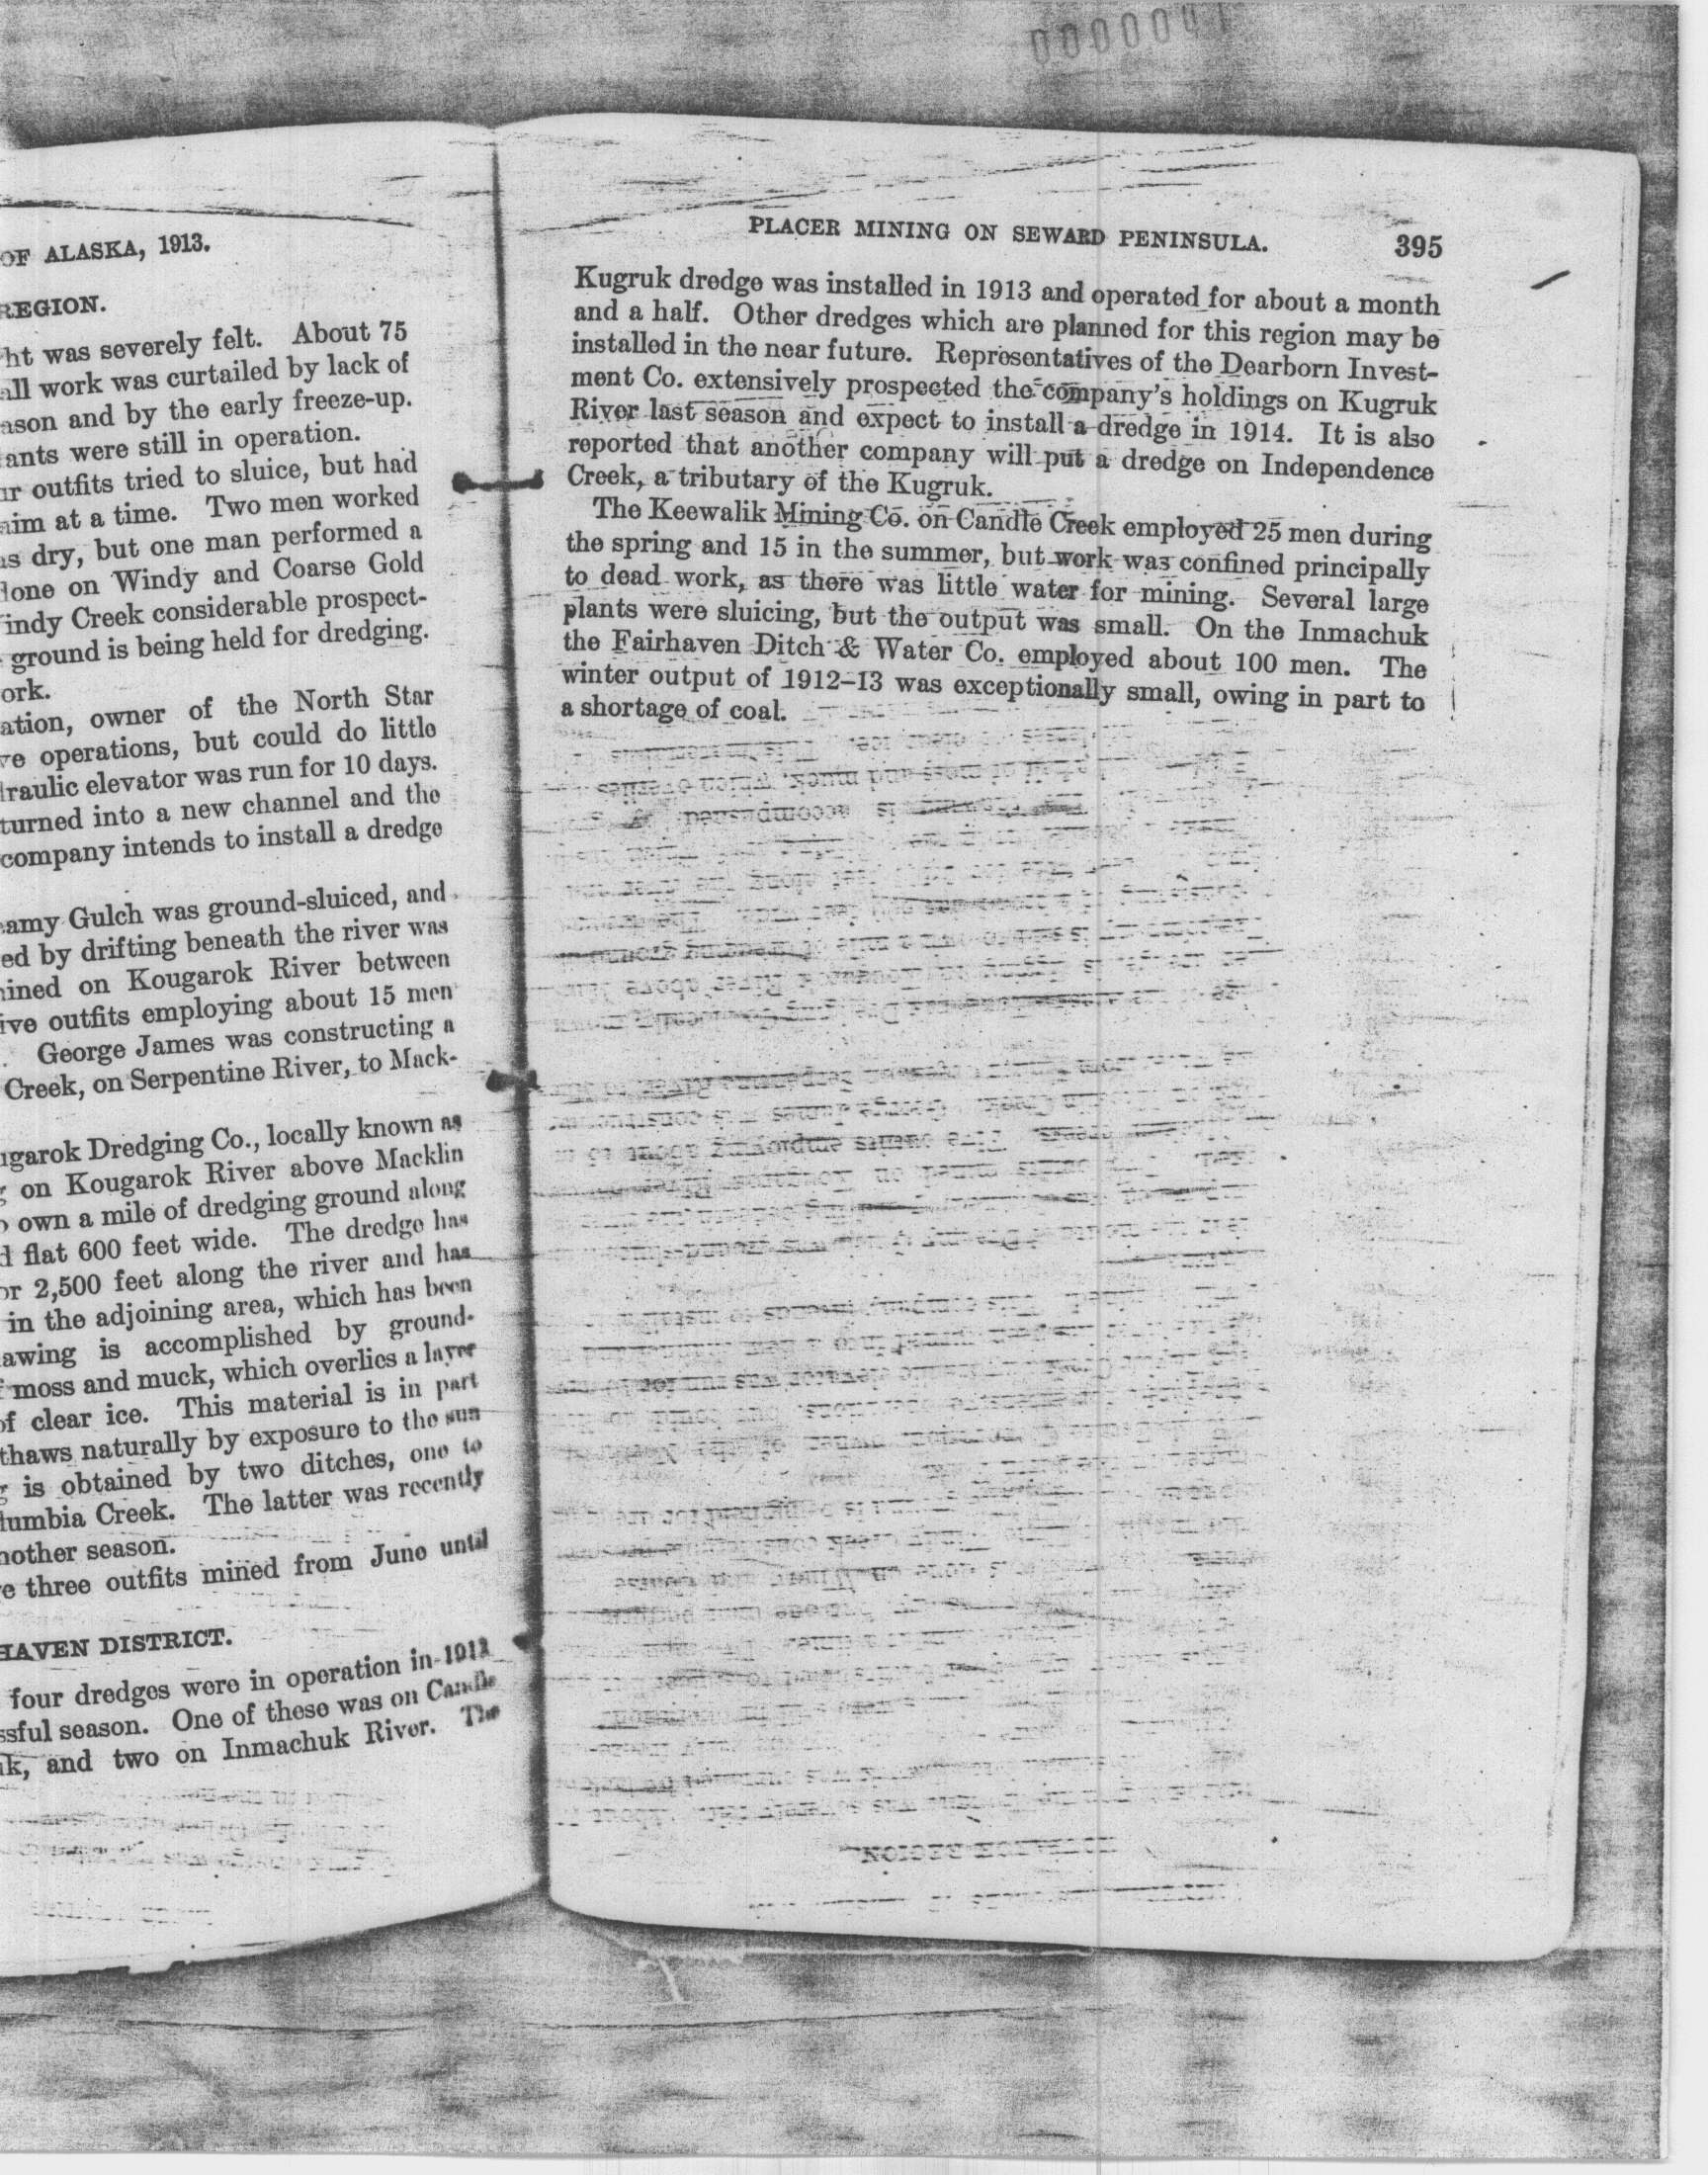 OF ALASKA, 1913.
REGION.
ht was severely felt. About 75
all work was curtailed by lack of
ason and by the early freeze-up.
ants were still in operation.
ur outfits tried to sluice, but had
aim at a time. Two men worked
as dry, but one man performed a
done on Windy and Coarse Gold
indy Creek considerable prospect-
ground is being held for dredging.
ork.
ation, owner of the North Star
ve operations, but could do little
draulic elevator was run for 10 days.
turned into a new channel and the
company intends to install a dredge
eamy Gulch was ground-sluiced, and
ed by drifting beneath the river was
ined on Kougarok River between
ive outfits employing about 15 men
George James was constructing a
Creek, on Serpentine River, to Mack-
ugarok Dredging Co., locally known as
g on Kougarok River above Macklin
o own a mile of dredging ground along
d flat 600 feet wide. The dredge has
or 2,500 feet along the river and has
in the adjoining area, which has been
awing is accomplished by ground-
f moss and muck, which overlies a layer
of clear ice. This material is in part
thaws naturally by exposure to the sun
g is obtained by two ditches, one to
lumbia Creek. The latter was recently
nother season.
ve three outfits mined from June until
HAVEN DISTRICT.
four dredges were in operation in
ssful season. One of these was on Candle
uk, and two on Inmachuk River. The
PLACER MINING ON SEWARD PENINSULA. 395
Kugruk dredge was installed in 1913 and operated for about a month
and a half. Other dredges which are planned for this region may be
installed in the near future. Representatives of the Dearborn Invest-
ment Co. extensively prospected the company's holdings on Kugruk
River last season and expect to install a dredge in 1914. It is also
reported that another company will put a dredge on Independence
Creek, a tributary of the Kugruk.
The Keewalik Mining Co. on Candle Creek employed 25 men during
the spring and 15 in the summer, but work was confined principally
to dead work, as there was little water for mining. Several large
plants were sluicing, but the output was small. On the Inmachuk
the Fairhaven Ditch & Water Co. employed about 100 men. The
winter output of 1912–13 was exceptionally small, owing in part to
a shortage of coal.